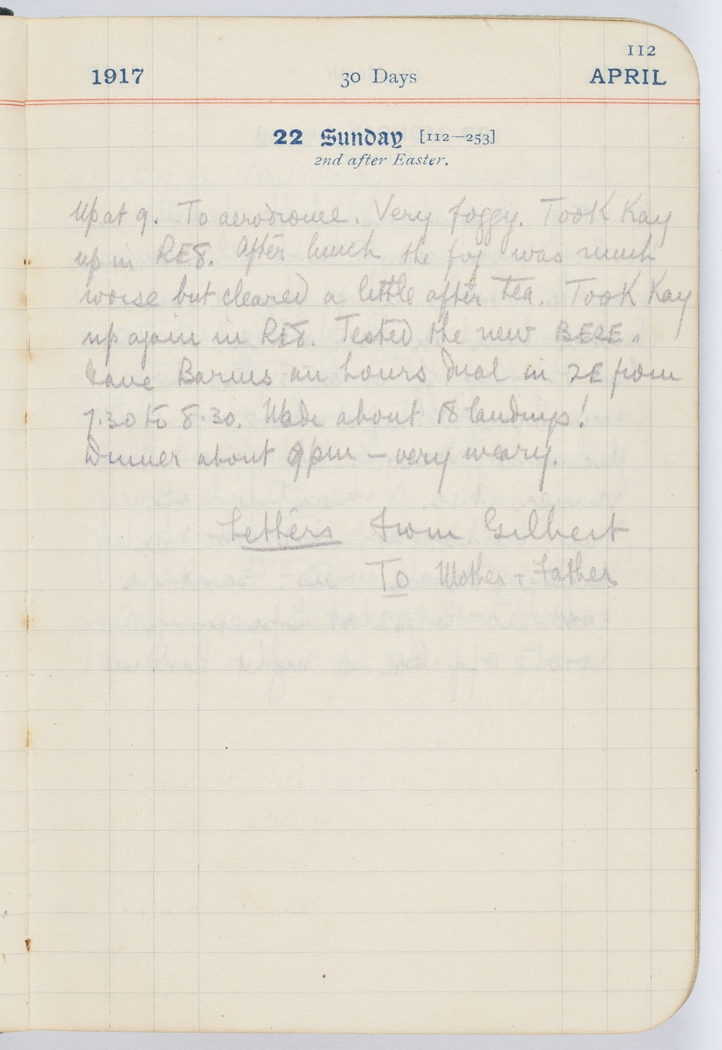 112
1917 30 Days APRIL
22 Sunday [112—253]
2nd after Easter.
Up at 9. To aerodrome. Very foggy. Took Kay
up in RE8. After lunch the fog was much
worse but cleared a little after tea. Took Kay
up again in RE8. Tested the new BE2E.
Gave Barnes an hours dual in 2E from
7.30 to 8.30. Made about 18 landings!
Dinner about 9pm — very weary.
Letters from Gilbert
To Mother & Father